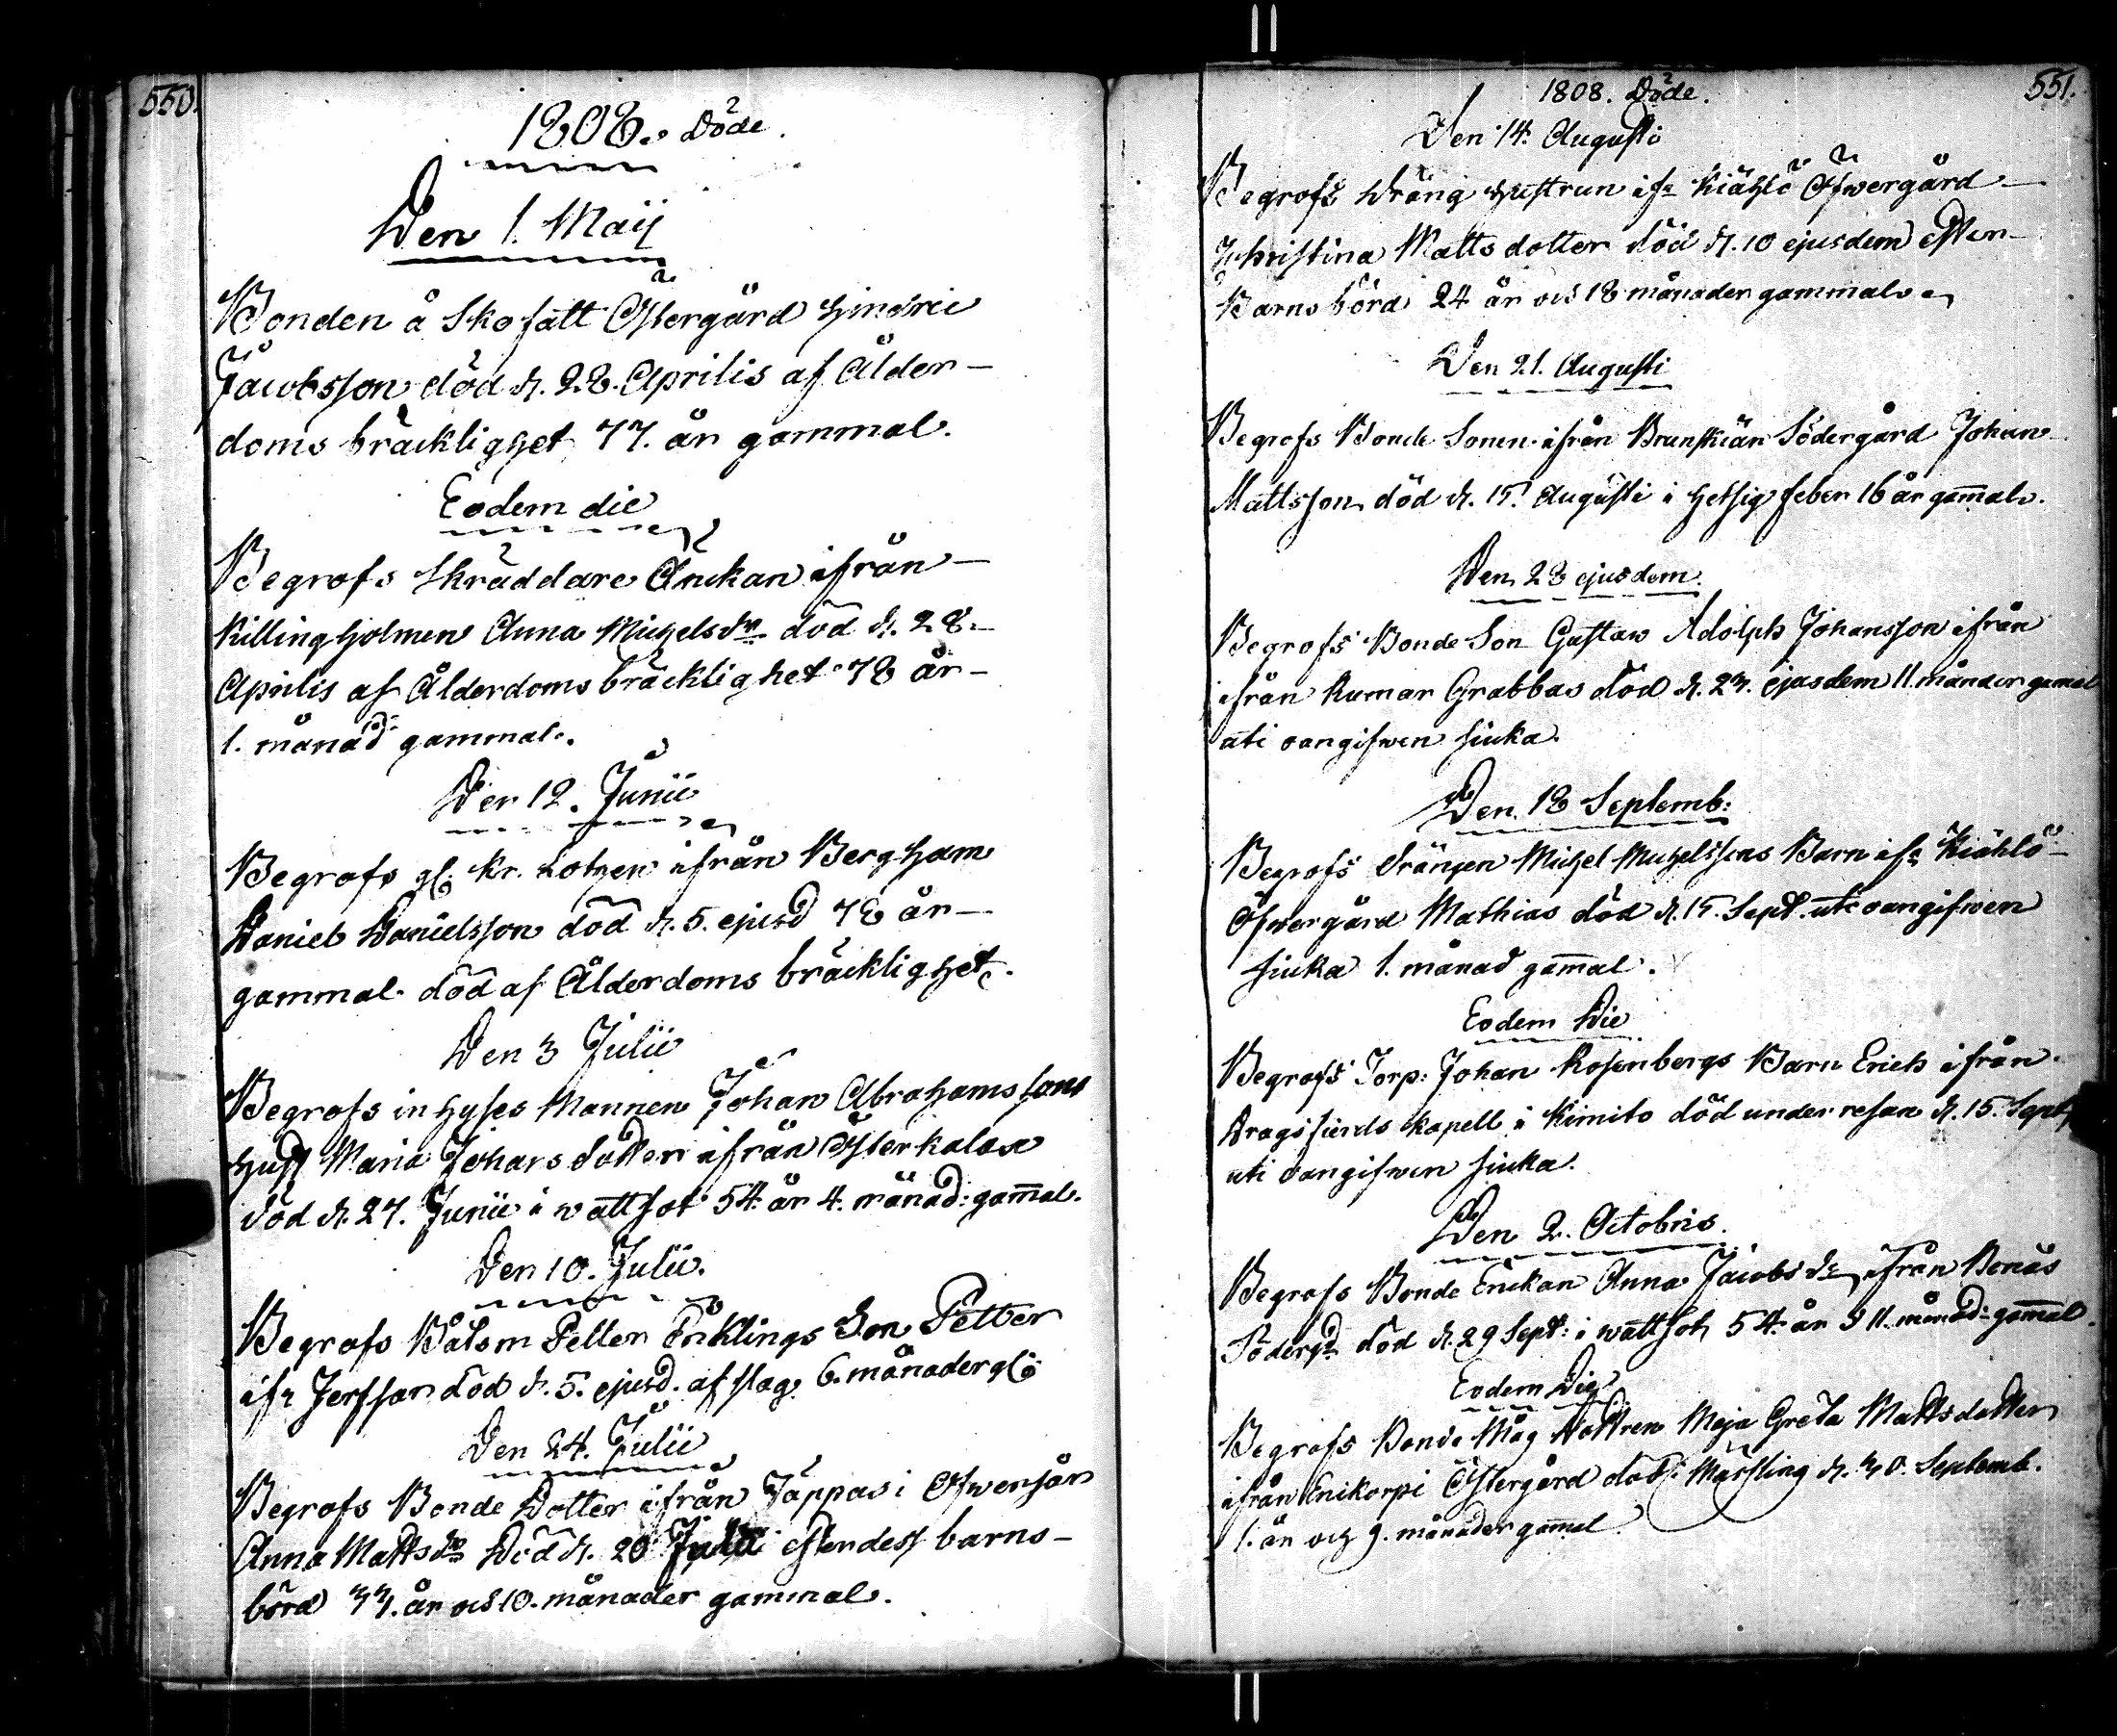 550.
1808. Döde.
Den 1. Maij
Bonden å Skofatt Östergård Hindric
Jacobsson död d. 28. Aprilis af Ålder-
doms bräcklighet 77. år gammal.
Eodem die
Begrofs Skräddare Änckan ifrån
Killingholmen Anna Michelsdr död d. 28.
Aprilis af Ålderdoms bräcklighet 78 år
1. månad gammal.
Den 12. Junii
Begrofs gl: kr. Lotzen ifrån Bergham
Daniel Danielsson död d. 5. ejusd 78 år
gammal död af Ålderdoms bräcklighet.
Den 3 Julii
Begrofs inhyses Mannen Johan Abrahamssons
Hust Maria Johans dotter ifrån Österkalax
död d. 27. Junii i wattsot 54. år 4. månad: gam̄al.
Den 10. Julii.
Begrofs Båtsm Petter Enklings Son Petter
ifr Jerfsor död d. 5. ejusd. af slag 6. månader gl:
Den 24. Julii
Begrofs Bonde Dotter ifrån Jäppas i Ofwersår
Anna Mattsdr Död d. 20 Julii efter dess barns-
börd 33. år och 10. månader gammal.
1808. Döde.
551.
Den 14. Augusti
Begrofs Dräng Hustrun ifr Kiählö Öfwergård
Christina Matts dotter död d. 10 ejusdem efter
Barns börd 24 år och 18 månader gammal
Den 21. Augusti
Begrofs Bonde Sonen ifrån Brunskiär Södergård Johan
Mattsson död d. 15. Augusti i hetsig feber 16 år gam̄al.
Den 28 ejusdem.
Begrofs Bonde Son Gustaw Adolph Johansson ifrån
ifrån Rumar Grabbas död d. 23. ejusdem 11. månader gamal
uti oangifwen siuka.
Den 18 Septemb:
Begrofs Drängen Michel Michelssons Barn ifr Kiählö
Öfwergård Mathias död d. 15. Sept. uti oangifwen
siuka 1. månad gam̄al.
Eodem Die
Begrofs Torp: Johan Rosenbergs Barn Erich ifrån
Dragsfierds kapell i Kimito död under resan d. 15. Sept
uti oangifwen siuka.
Den 2. Octobris.
Begrofs Bonde Enckan Anna Jacobs dr ifrån Bonäs
Södergd död d. 29 Sept: i wattsot 54. år & 11. månad: gam̄al.
Eodem Die
Begrofs Bonde Måg Dottren Maja Greta Mattsdotter
ifrån Enikorpi Östergård död i Mässling d. 30. Septemb.
1. år och 9. månader gamal.